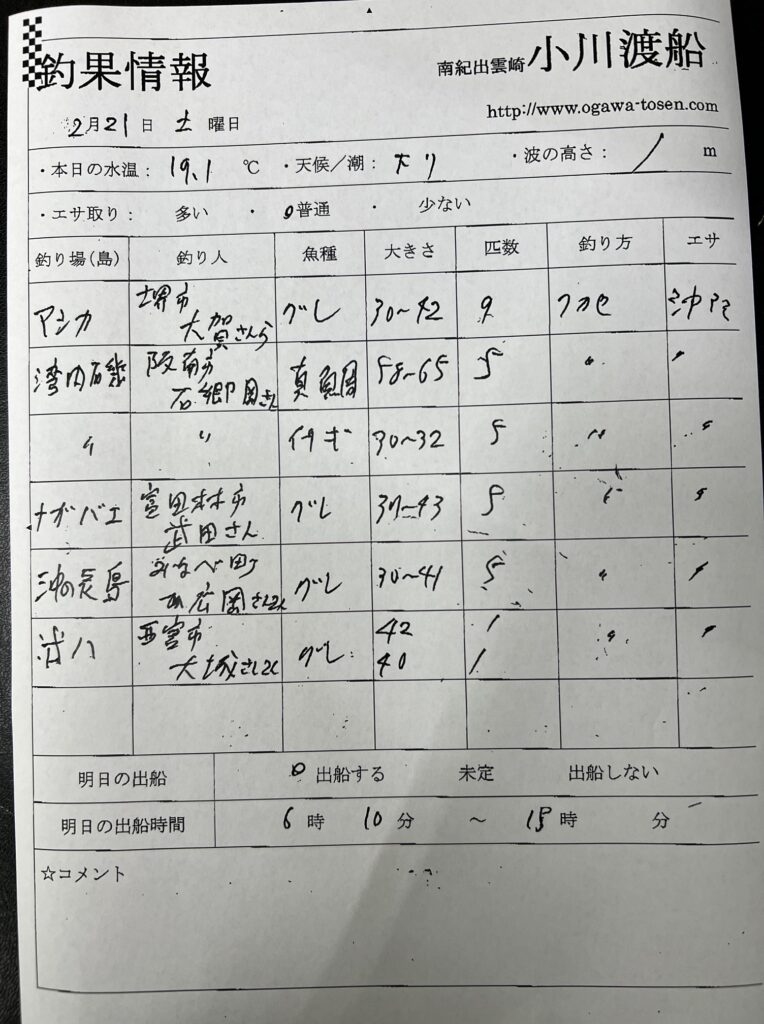 釣果情報 南紀出雲崎 小川渡船
http://www.ogawa-tosen.com
2月21日 土 曜日
・本日の水温: 19.1 ℃ ・天候/潮: ・波の高さ: 1 m
・エサ取り: 多い ・ 普通 ・ 少ない
釣り場(島) 釣り人 魚種 大きさ 匹数 釣り方 エサ
アシカ 堺市 グレ 30~42 9 フカセ 沖アミ
大賀さんら
湾内石鯛 阪南市 58~65 5 〃 〃
石郷岡さん
〃 〃 イサギ 30~32 5 〃 〃
ナガバエ 富田林市 グレ 30~43 〃 〃
武田さん
沖の長島 みなべ町 グレ 30~41 5 〃 〃
広岡さん
西宮市 グレ 42 1 〃 〃
大城さん 40 1
明日の出船 出船する 未定 出船しない
明日の出船時間 6時 10分 ~ 15時 分
☆コメント